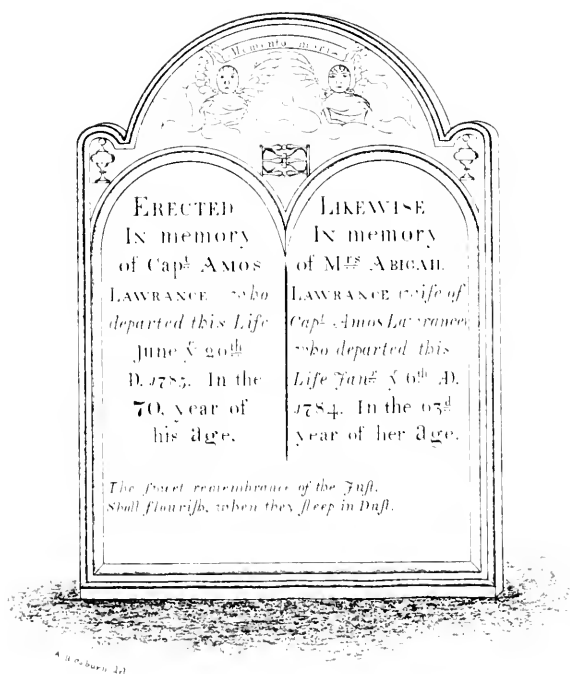 Memento mori
ERECTED
In memory
of Capt. AMOS
LAWRANCE who
departed this Life
June yͤ 20th
D. 1785. In the
70. year of
his age.
LIKEWISE
In memory
of Mrs ABIGAIL
LAWRANCE wife of
Capt. Amos Lawrance
who departed this
Life Janr. yͤ 6th AD.
1784. In the 63d
year of her age.
The sweet remembrance of the Juſt.
Shall flouriſh, when they ſleep in Duſt.
del